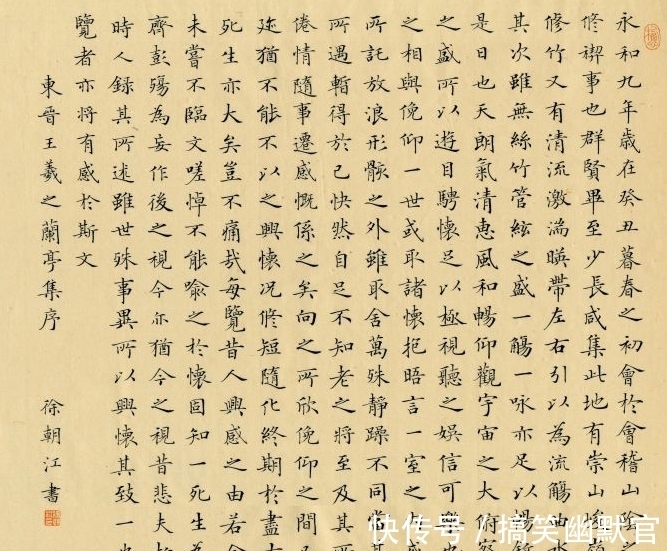 永和九年歲在癸丑暮春之初會於會稽山陰之
修禊事也群賢畢至少長咸集此地有崇山峻嶺
修竹又有清流激湍暎帶左右引以為流觴曲水
其次雖無絲竹管絃之盛一觴一詠亦足以暢敘
是日也天朗氣清惠風和暢仰觀宇宙之大俯
之盛所以遊目騁懷足以極視聽之娛信可樂也
之相與俛仰一世或取諸懷抱晤言一室之
所託放浪形骸之外雖取舍萬殊靜躁不同當其
所遇暫得於己快然自足不知老之將至及其所
倦情隨事遷感慨係之矣向之所欣俛仰之間
跡猶不能不以之興懷況修短隨化終期於盡古
死生亦大矣豈不痛哉每覽昔人興感之由若合
未嘗不臨文嗟悼不能喻之於懷固知一死生為
齊彭殤為妄作後之視今亦猶今之視昔悲夫
時人録其所述雖世殊事異所以興懷其致一也
覽者亦將有感於斯文
東晉王羲之蘭亭集序 徐朝江書
快传号 / 搞笑幽默官